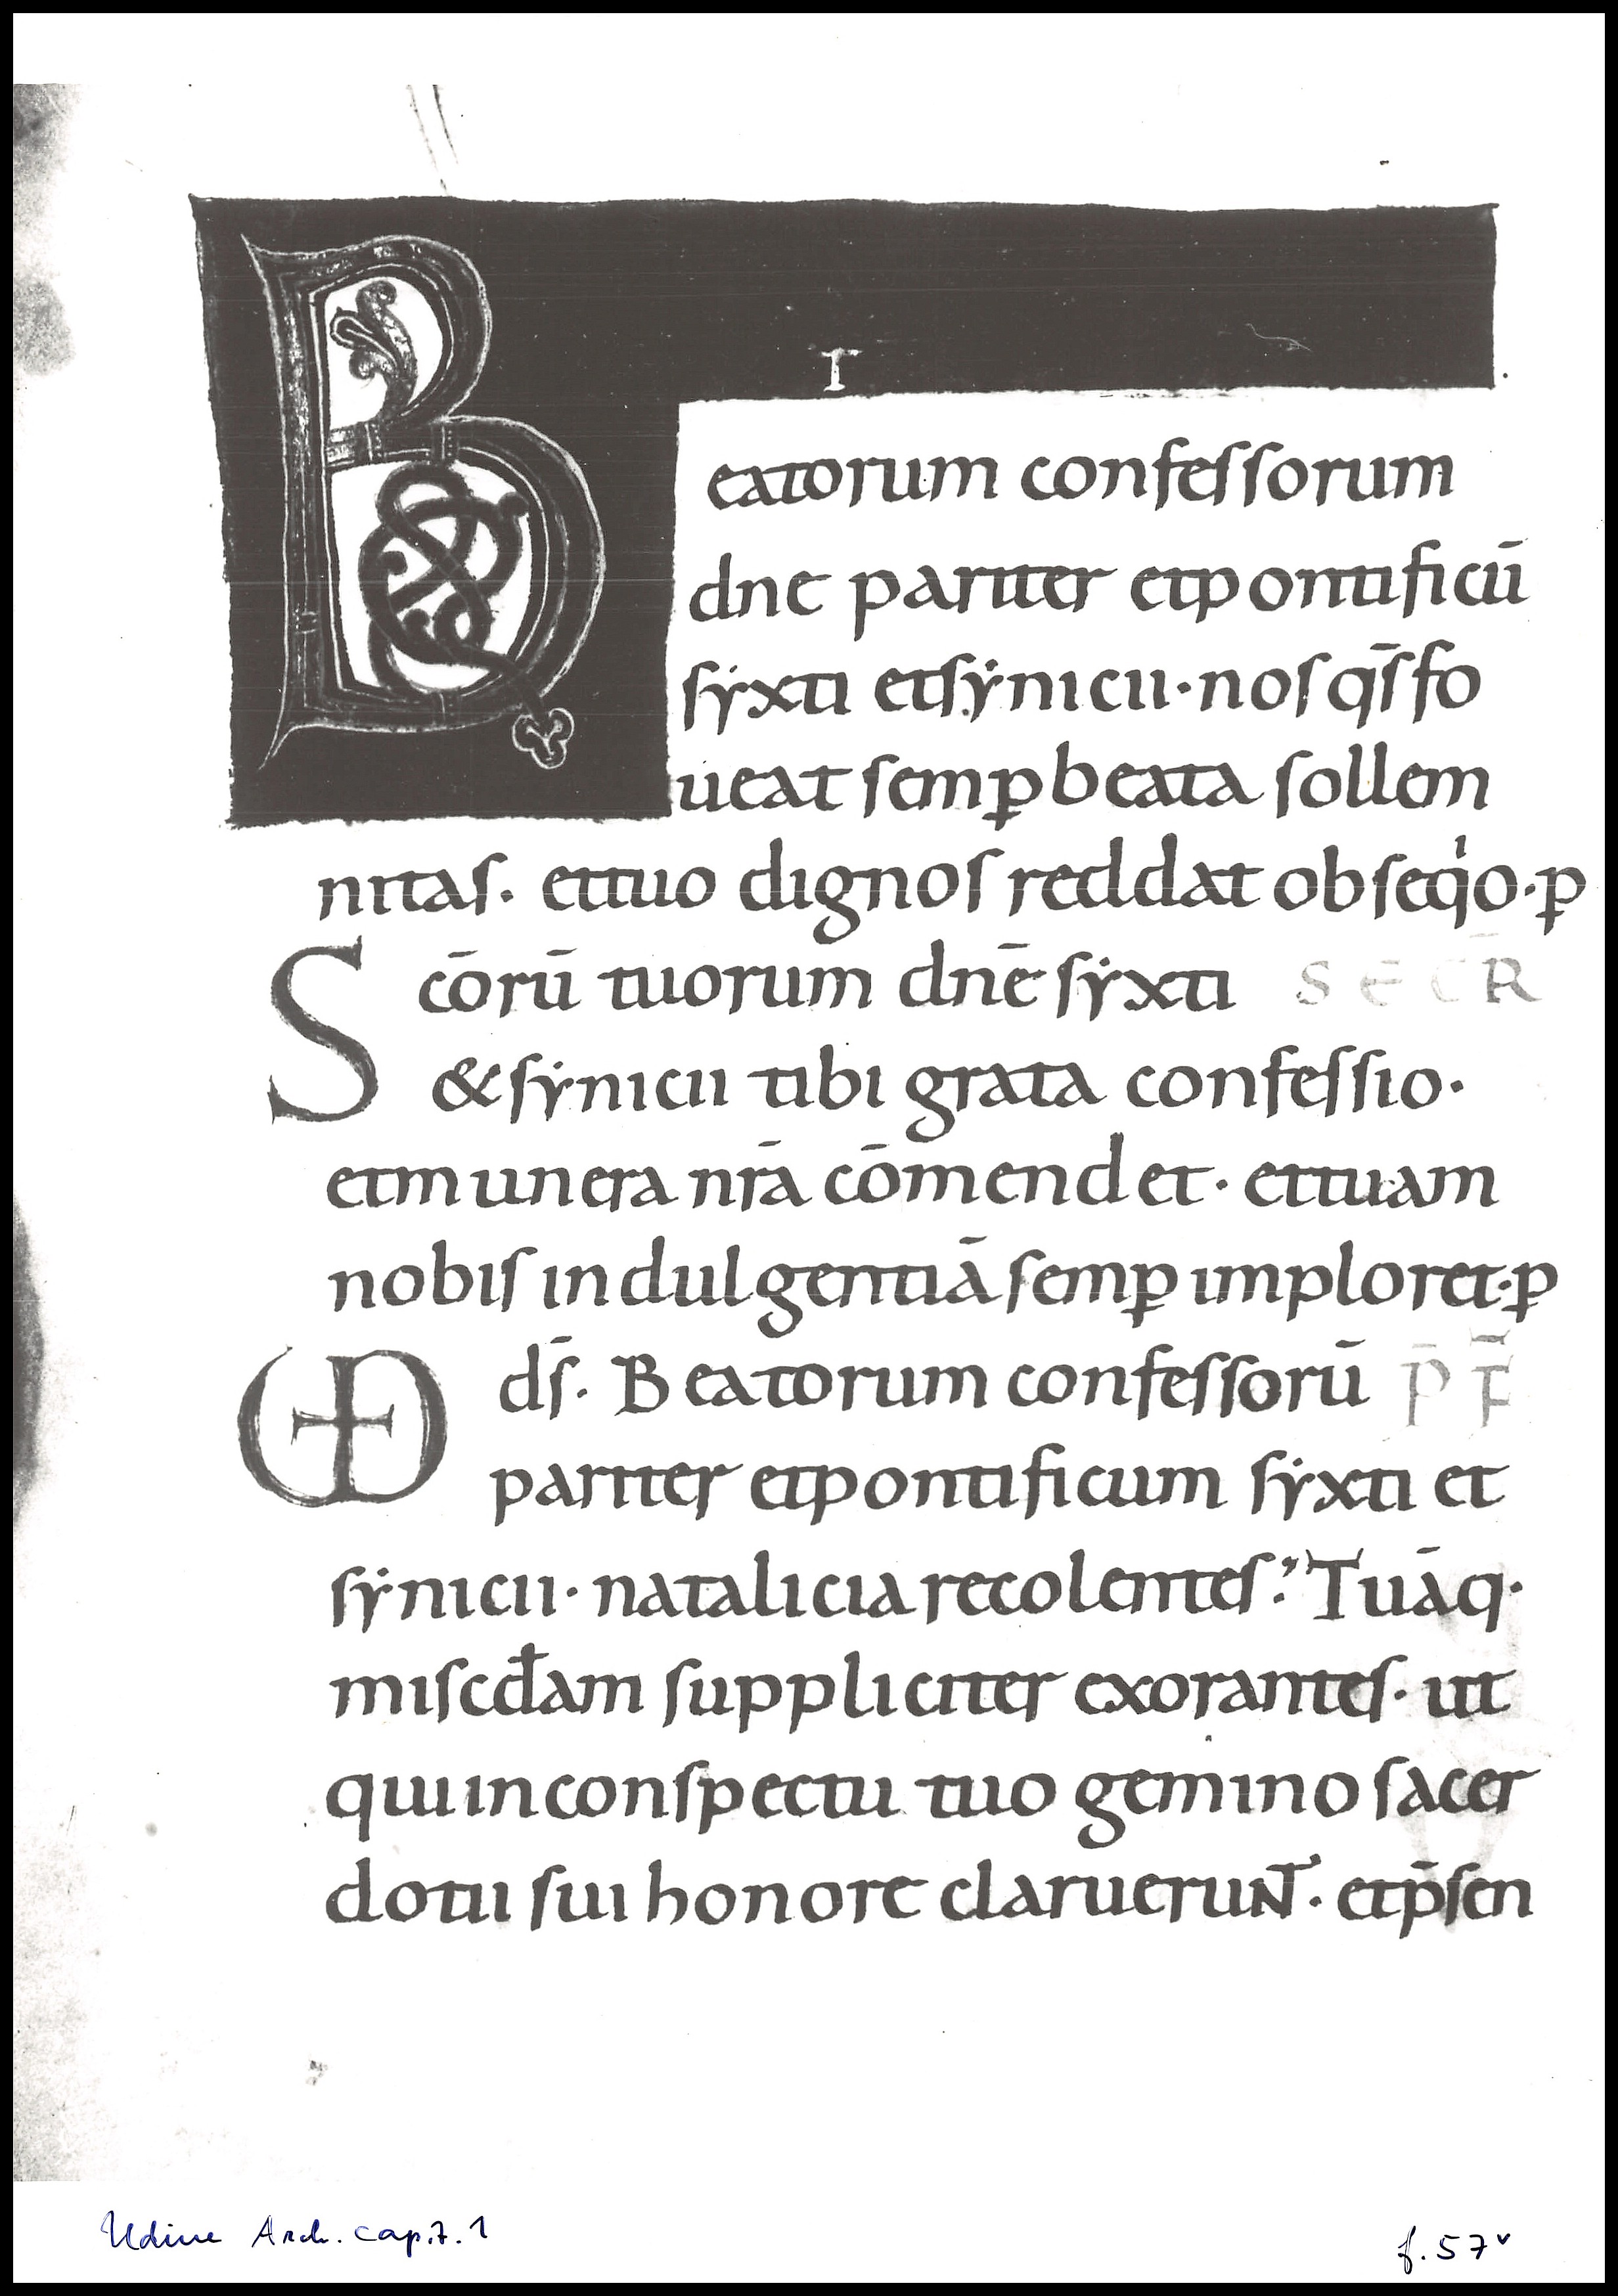 T
Beatorum confessorum
dne pariter et pontificū
sẏxti et sẏnicii· nos qs̄ fo
ueat semꝑ beata sollem
nitas· et tuo dignos reddat obseqͥo· ꝑ
Scōrū tuorum dnē sẏxti SECR̄
& sẏnicii tibi grata confessio·
et munera nr̄a cōmendet· et tuam
nobis indulgentiā semꝑ imploret· ꝑ
VD ds̄· Beatorum confessorū P̄F̄
pariter et pontificum sẏxti et
sẏnicii· natalicia recolentes: Tuāq·
miscđam suppliciter exorantes· ut
qui in conspectu tuo gemino sacer
dotii sui honore claruerunt· et p̄sen
Udine Arch. cap. 7. 1
f. 57v